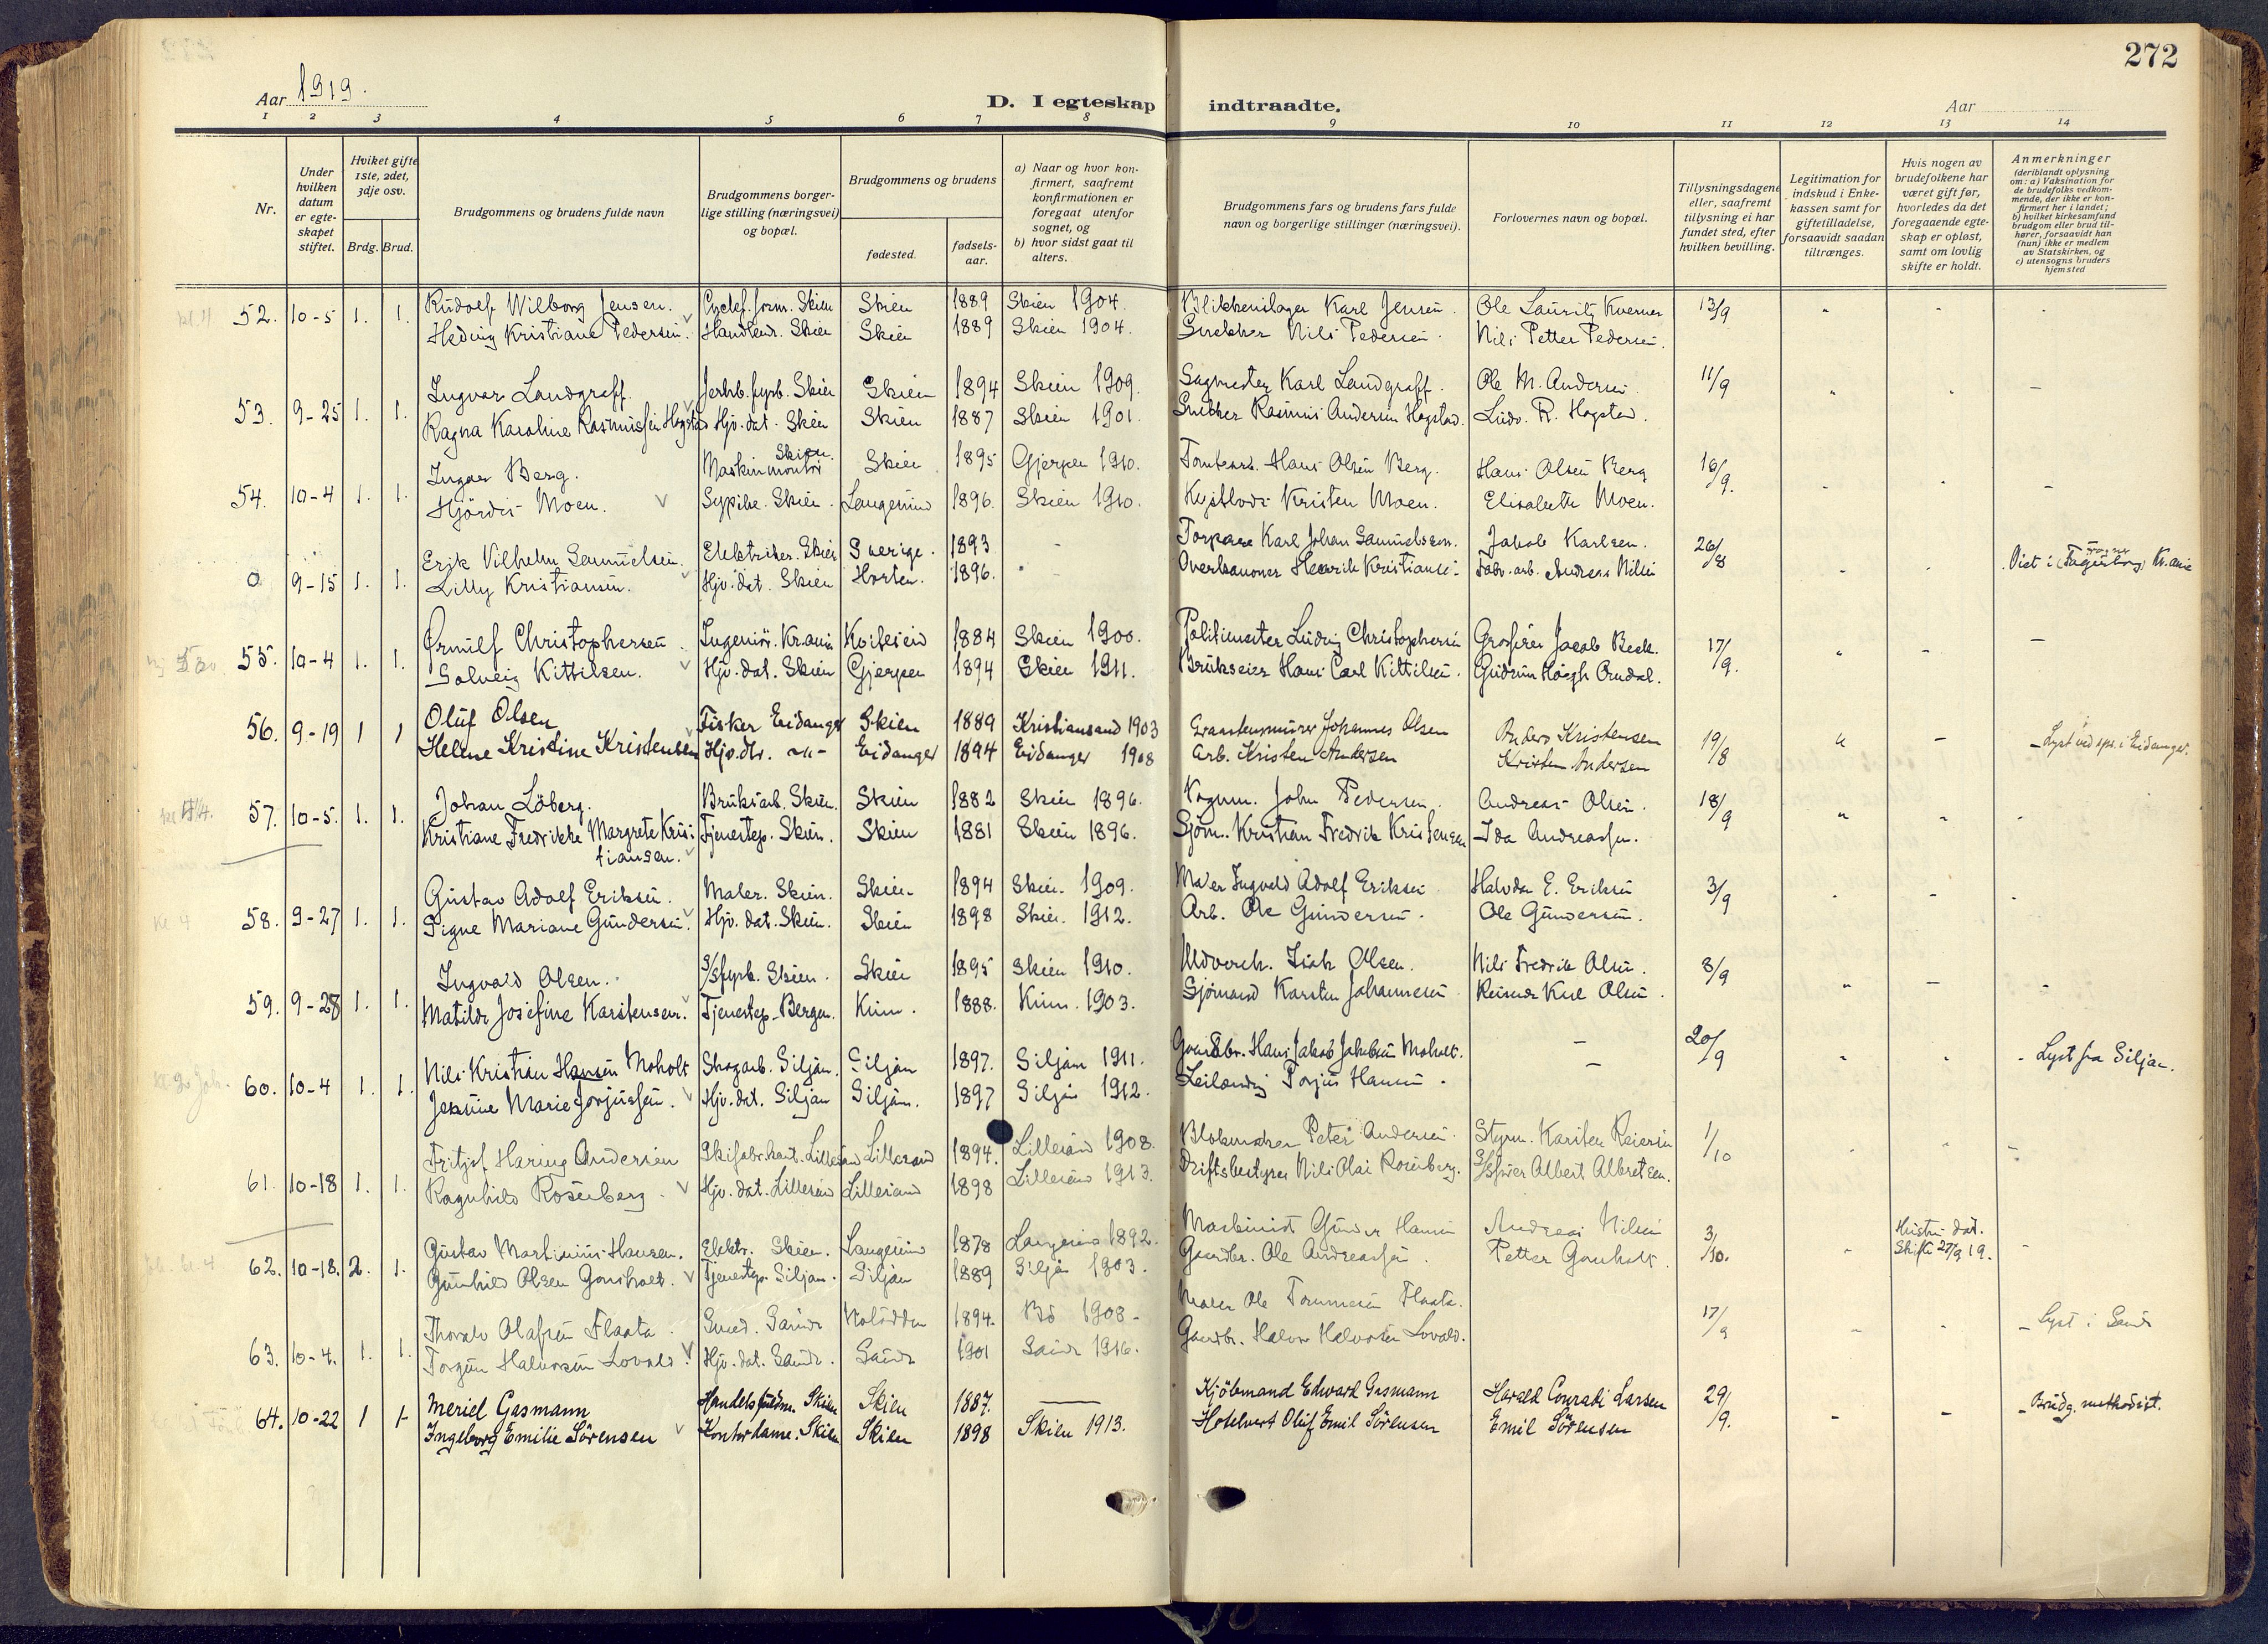 272
Aar 1919.
D. I egteskap indtraadte.
Aar
1 2 3 4 5 6 7 8 9 10 11 12 13 14
Nr.
Under hvilken datum er egte-skapet stiftet.
Hviket gifte 1ste, 2det, 3dje osv.
Brdg. Brud.
Brudgommens og brudens fulde navn
Brudgommens borger-lige stilling (næringsvei) og bopæl.
Brudgommens og brudens
fødested.
fødsels-aar.
a) Naar og hvor kon-firmert, saafremt konfirmationen er foregaat utenfor sognet, og
b) hvor sidst gaat til alters.
Brudgommens fars og brudens fars fulde navn og borgerlige stillinger (næringsvei).
Forlovernes navn og bopæl.
Tillysningsdagene eller, saafremt tillysning ei har fundet sted, efter hvilken bevilling.
Legitimation for indskud i Enke-kassen samt for giftetilladelse, forsaavidt saadan tiltrænges.
Hvis nogen av brudefolkene har været gift før, hvorledes da det foregaaende egte-skap er opløst, samt om lovlig skifte er holdt.
Anmerkninger (deriblandt oplysning om: a) Vaksination for de brudefolks vedkom-mende, der ikke er kon-firmert her i landet; b) hvilket kirkesamfund brudgom eller brud til-hører, forsaavidt han (hun) ikke er medlem av Statskirken, og c) utensogns bruders hjemsted
52. 10-5 1. 1. Rudolf Wilborg Jensen. Skien Skien 1889 Skien 1904. Blikkenslager Karl Jensen. Ole Lauritz Kverner 13/9
Hedvig Kristiane Pedersen. Handlend. Skien Skien 1889 Skien 1904. Snekker Nils Pedersen. Nils Petter Pedersen.
53. 9-25 1. 1. Ingvar Landgraff. Jernb.fyrb. Skien Skien 1894 Skien 1909. Sagmester Karl Landgraff. Ole M. Andersen. 11/9
Ragna Karoline Rasmussen Hogstad Hjv. dat. Skien Skien 1887 Skien 1901. Snekker Rasmus Andersen Hogstad. Ludv. R. Hogstad.
54. 10-4 1. 1. Ingvar Berg. Maskinmontør Skien. Skien 1895 Gjerpen 1910. Tomtearb. Hans Olsen Berg. Hans Olsen Berg 16/9.
Hjördis Moen. Sypike. Skien. Langesund 1896. Skien 1910. Kystlods Kristen Moen. Elisabeth Moen.
0 9-15 1. 1. Erik Vilhelm Samuelsen. Elektriker. Skien Sverige. 1893 - Torpare Karl Johan Samuelsson. Jakob Karlsen. 26/8 Viet i (Fagerborg) Kr.ania
Lilly Kristiansen. Hjv. dat. Skien Horten. 1896. - Overkanoner Henrik Kristiansen Fabr.arb. Andreas Nilsen
55. 10-4 1. 1. Ørnulf Christophersen. Ingeniör. Kr.ania Kviteseid 1884 Skien 1900. Politimester Ludvig Christophersen Grosserer Jacob Beck. 17/9.
Solveig Kittilsen. Hjv. dat. Skien Gjerpen 1894 Skien 1911. Brukseier Hans Carl Kittilsen. Gudrun Höegh Omdal.
56. 9-19 1 1 Oluf Olsen Fisker Eidanger Skien 1889 Kristiansand 1903 Graastensmurer Johannes Olsen Anders Kristensen 19/8 - Lyst ved spr. i Eidanger.
Helene Kristine Kristensen Hjv. dtr. -"- Eidanger 1894 Eidanger 1908 Arb. Kristen Andersen Kristen Andersen
57. 10-5. 1. 1. Johan Löberg. Bruksarb. Skien. Skien 1882 Skien 1896. Vognm. John Pedersen. Andreas Olsen. 18/9
Kristiane Fredrikke Margrete Kristiansen. Tjenestep. Skien. Skien 1881 Skien 1896. Sjöm. Kristian Fredrik Kristensen Ida Andreassen.
58. 9-27 1. 1. Gustav Adolf Eriksen. Maler. Skien. Skien 1894 Skien 1909. Maler Ingvald Adolf Eriksen Halvdan E. Eriksen 3/9
Signe Mariane Gundersen. Hjv. dat. Skien. Skien 1898 Skien. 1912. Arb. Ole Gundersen. Ole Gundersen.
59. 9-28 1. 1. Ingvald Olsen. S/S fyrb. Skien. Skien 1895 Skien 1910. Isak Olsen. Nils Fredrik Olsen. 8/9
Matilde Josefine Karstensen. Tjenestep. Bergen. Kinn. 1888. Kinn. 1903. Sjömand Karsten Johannesen Olsen.
60. 10-4 1. 1. Nils Kristian Hansen Moholt Skogarb. Siljan. Siljan 1897. Siljan 1911. Gaardbr. Hans Jakob Jakobsen Moholt. - 20/9 - Lyst fra Siljan.
Jensine Marie Torjussen. Hjv. dat. Siljan Siljan. 1897 Siljan 1912. Leilænding Torjus Hansen. -
61. 10-18 1. 1. Fritjof Haring Andersen Skifabrikant. Lillesand Lillesand 1894. Lillesand 1908. Blokmaker Peter Andersen. Styrm. Karsten Reiersen 1/10
Ragnhild Rosenberg. Hjv. dat. Lillesand Lillesand 1898 Lillesand 1913. Driftsbestyrer Nils Olai Rosenberg. Albert Albretsen.
62. 10-18. 2. 1. Gustav Martinius Hansen. Elektr. Skien. Langesund 1878 Langesund 1892. Maskinist Gunder Hansen Andreas Nilsen 3/10. Hustru död. Skifte 27/9 19.
Gunhild Olsen Gonsholt. Tjenestep. Siljan. Siljan 1889 Siljan 1903. Gaardbr. Ole Andreassen. Petter Gonholt.
63. 10-4. 1. 1. Thorvald Olafsen Flaata. Smed. Sande Notodden 1894. Bö 1908. Maler Ole Tommesen Flaata. 17/9 - Lyst i Sande
Torgun Halvorsen Lovald. Hjv. dat. Sande. Sande 1901 Sande 1916. Gaardbr. Halvor Halvorsen Lovald.
64. 10-22 1 1 Meriel Gasmann Handelsfuldm. Skien Skien 1887. — Kjöbmand Edward Gasmann Harald Conradi Larsen 29/9. - Brudg. methodist.
Ingeborg Emilie Sörensen Kontordame. Skien Skien 1898 Skien 1913. Hotelvert Oluf Emil Sörensen Emil Sörensen